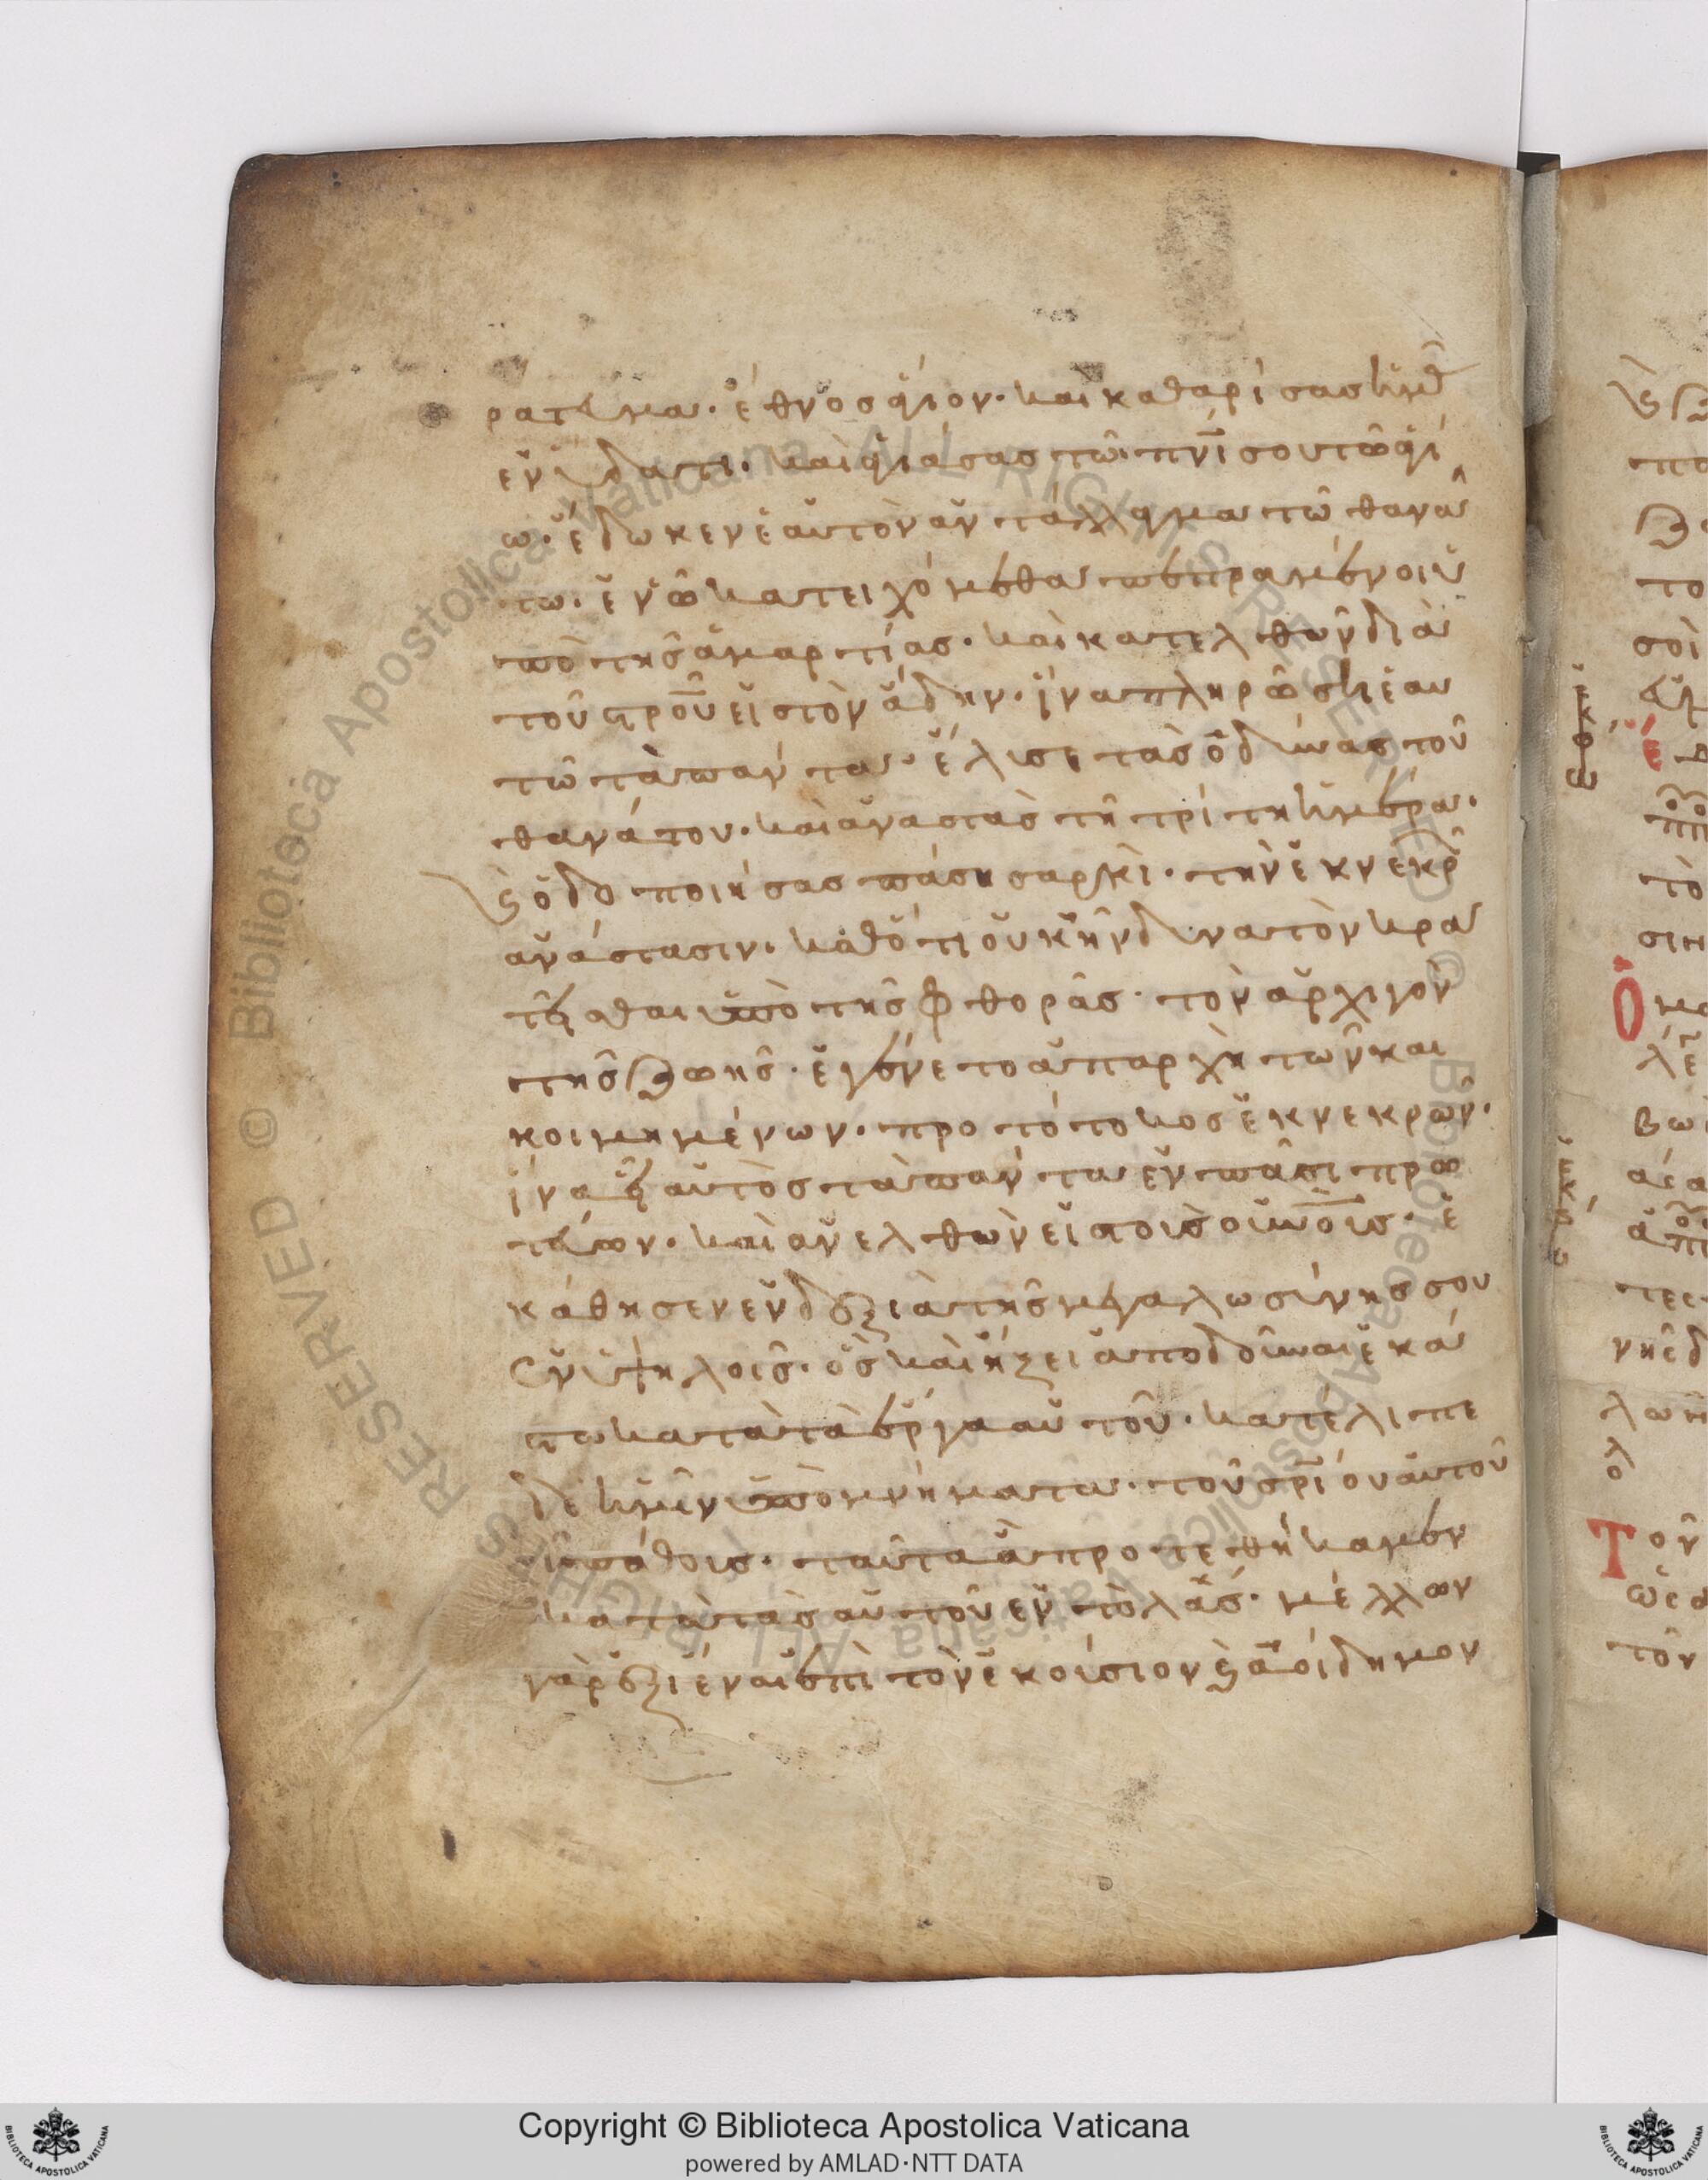 ράτευμα· ἔθνος ἅγιον· καὶ καθαρίσας ἡμᾶς
ἐν ὕδατι· καὶ ἁγιάσας τῶ πνι σου τῶ ἁγί
ω· ἔδωκεν ἑαυτὸν ἀντάλλαγμα τῶ θανά
τω· ἐν ὧ κατειχόμεθα πεπραμένοι ὑ
πὸ τῆς ἁμαρτίας· καὶ κατελθὼν διὰ
τοῦ στροῦ εἰς τὸν ἅδην· ἵνα πληρώση ἑαυ
τῶ τὰ πάντα· ἔλυσε τὰς ὀδύνας τοῦ
θανάτου· καὶ ἀναστὰς τῆ τρίτη ἡμέρα·
καὶ ὁδοποιήσας πάση σαρκὶ· τὴν ἐκ νεκρῶν
ἀνάστασιν· καθότι οὐκ ἦν δυνατὸν κρα
τεῖσθαι ὑπὸ τῆς φθορᾶς· τὸν ἀρχηγὸν
τῆς ζωῆς· ἐγένετο ἀπαρχὴ τῶν και
κοιμημένων· προτότοκος ἐκ νεκρῶν·
ἵνα ἦ αὐτὸς τὰ πάντα ἐν πᾶσι πρω
τεύων· καὶ ἀνελθὼν εἰς τοὺς οὐνοὺς· ἐ
κάθησεν ἐν δεξιὰ τῆς μεγαλωσύνης σου
ἐν ὑψηλοῖς· ὃς καὶ ἥξει ἀποδδοῦναι ἑκά
στω κατὰ τὰ ἔργα αὐτοῦ· κατέλιπε
δὲ ἡμῖν ὑπομνήματα· τοῦ σρίου αὐτοῦ
πάθους· ταῦτα ἃ προτεθήκαμεν
κατὰ τὰς αὐτοῦ ἐντολάς· μέλλων
γὰρ ἐξιέναι ἐπὶ τὸν ἑκούσιον καὶ ἀοίδημον